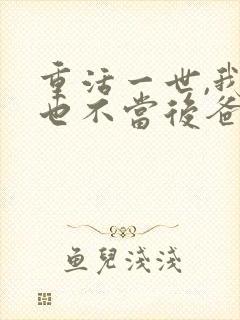 重活一世,我
也不當後爸
魚兒淺淺